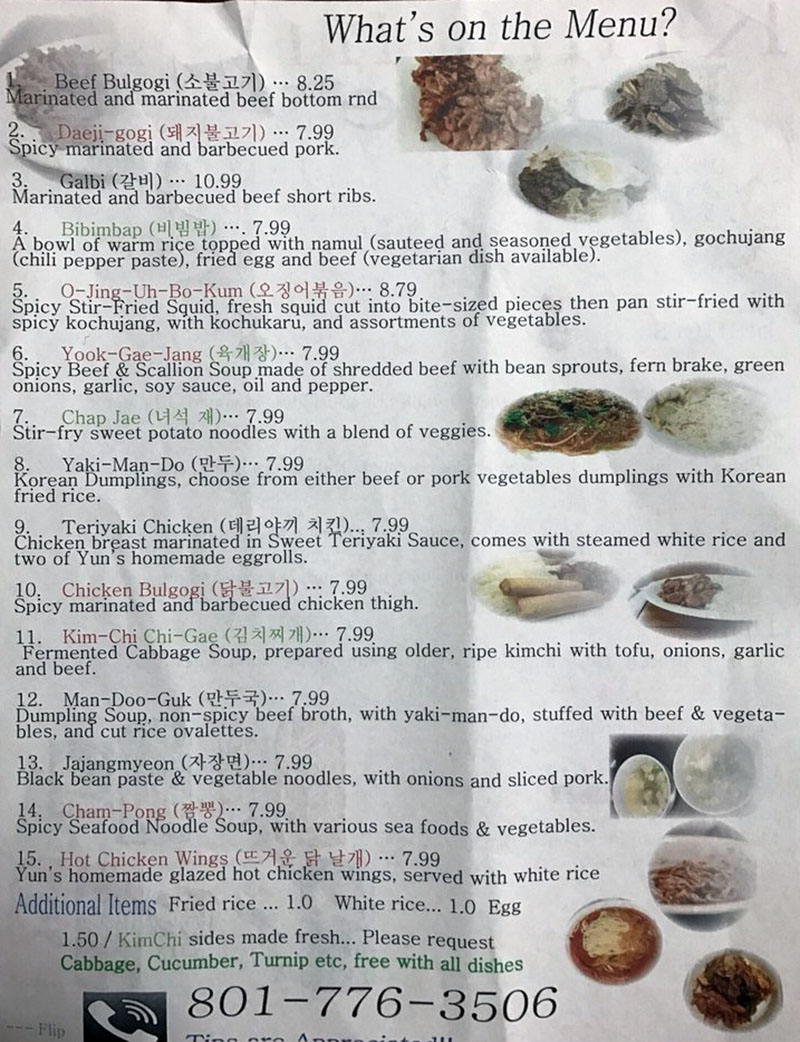 What's on the Menu?
1. Beef Bulgogi (소불고기) … 8.25
Marinated and marinated beef bottom rnd
2. Daeji-gogi (돼지불고기) … 7.99
Spicy marinated and barbecued pork.
3. Galbi (갈비) … 10.99
Marinated and barbecued beef short ribs.
4. Bibimbap (비빔밥) …. 7.99
A bowl of warm rice topped with namul (sauteed and seasoned vegetables), gochujang
(chili pepper paste), fried egg and beef (vegetarian dish available).
5. O-Jing-Uh-Bo-Kum (오징어볶음)… 8.79
Spicy Stir-Fried Squid, fresh squid cut into bite-sized pieces then pan stir-fried with
spicy kochujang, with kochukaru, and assortments of vegetables.
6. Yook-Gae-Jang (육개장)… 7.99
Spicy Beef & Scallion Soup made of shredded beef with bean sprouts, fern brake, green
onions, garlic, soy sauce, oil and pepper.
7. Chap Jae (녀석 재)… 7.99
Stir-fry sweet potato noodles with a blend of veggies.
8. Yaki-Man-Do (만두)… 7.99
Korean Dumplings, choose from either beef or pork vegetables dumplings with Korean
fried rice.
9. Teriyaki Chicken (데리야끼 치킨)... 7.99
Chicken breast marinated in Sweet Teriyaki Sauce, comes with steamed white rice and
two of Yun's homemade eggrolls.
10. Chicken Bulgogi (닭불고기) … 7.99
Spicy marinated and barbecued chicken thigh.
11. Kim-Chi Chi-Gae (김치찌개)… 7.99
Fermented Cabbage Soup, prepared using older, ripe kimchi with tofu, onions, garlic
and beef.
12. Man-Doo-Guk (만두국)… 7.99
Dumpling Soup, non-spicy beef broth, with yaki-man-do, stuffed with beef & vegeta-
bles, and cut rice ovalettes.
13. Jajangmyeon (자장면)… 7.99
Black bean paste & vegetable noodles, with onions and sliced pork.
14. Cham-Pong (짬뽕)… 7.99
Spicy Seafood Noodle Soup, with various sea foods & vegetables.
15. . Hot Chicken Wings (뜨거운 닭 날개) … 7.99
Yun's homemade glazed hot chicken wings, served with white rice
Additional Items Fried rice ... 1.0 White rice... 1.0 Egg
1.50 / KimChi sides made fresh... Please request
Cabbage, Cucumber, Turnip etc, free with all dishes
801-776-3506
--- Flip
Tips are Appreciated!!